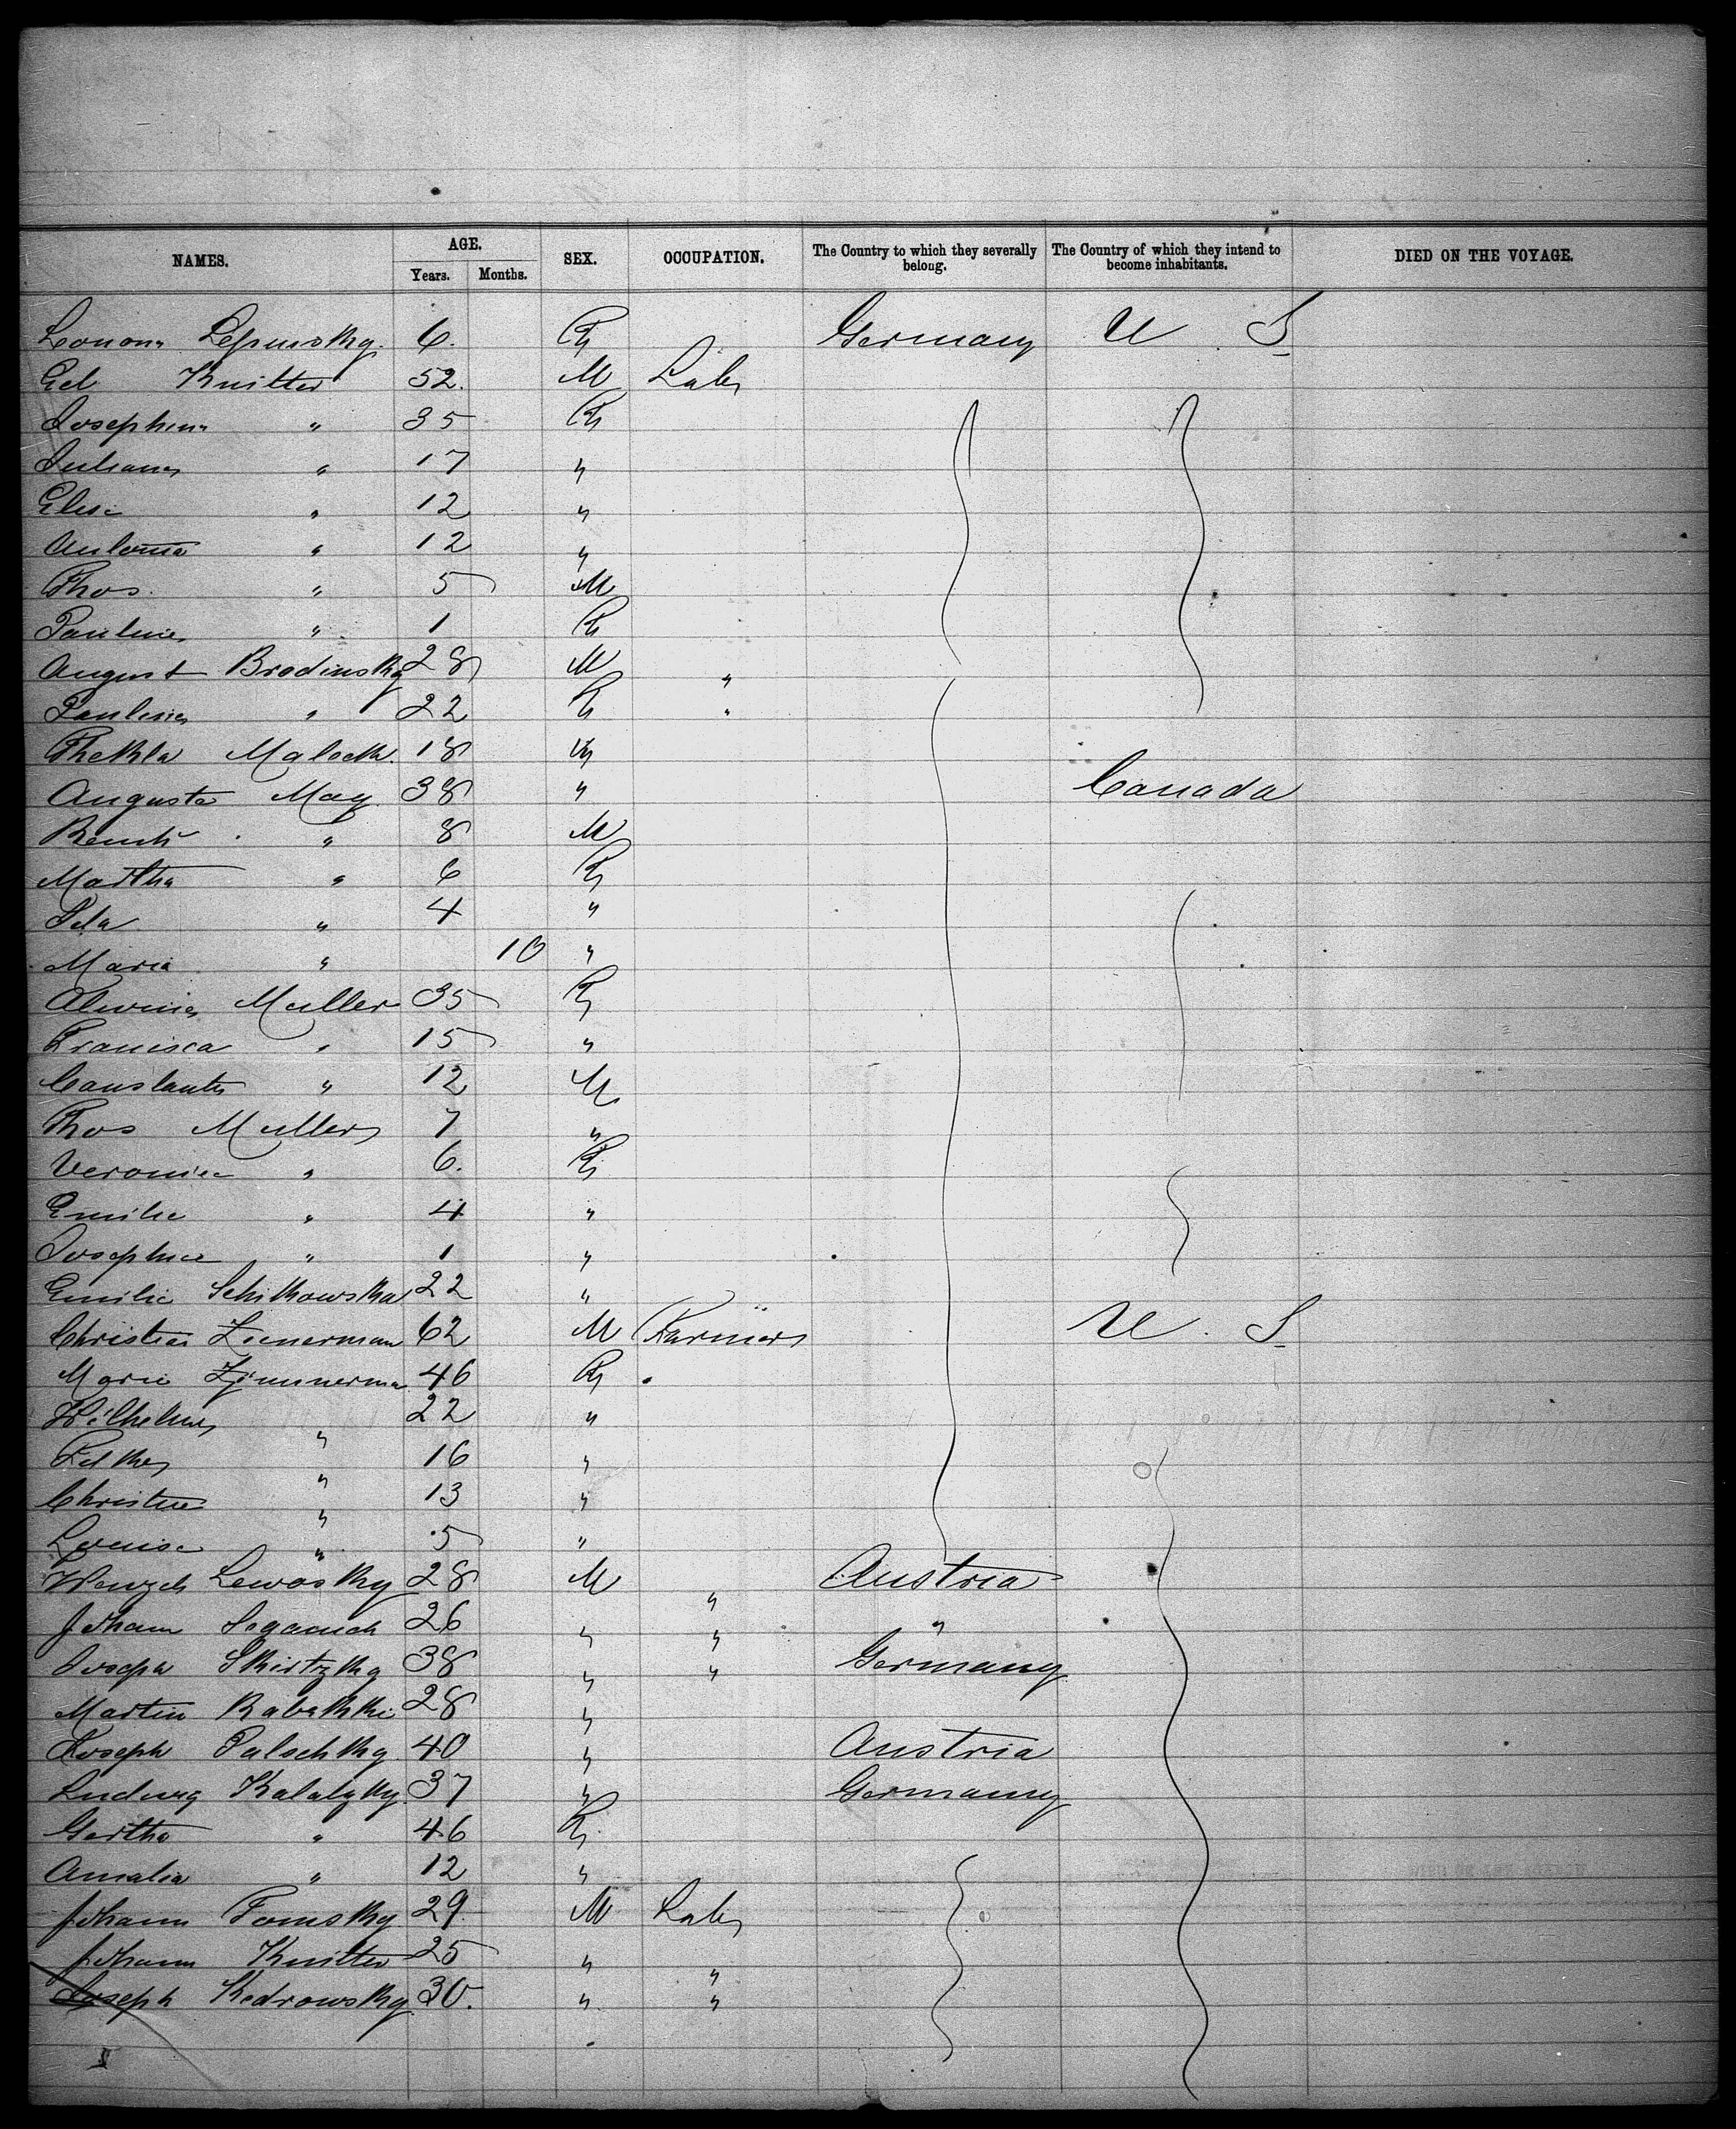 NAMES. AGE. Years. Months. SEX. OCCUPATION. The Country to which they severally belong. The Country of which they intend to become inhabitants. DIED ON THE VOYAGE.
6. F Germany U. S
Knitter 52. M Lab
Josephine " 35 F
Juliana " 17 "
Elise " 12 "
Antonia " 12 "
Thos. " 5 M
Pauline " 1 F
August Brodinsky 28 M "
Pauline " 22 F "
Thekla 18 F
Auguste May 38 " Canada
" 8 M
Martha " 6 F
Ida " 4 "
Maria " 10 "
Alwine Muller 35 F
Franisca " 15 "
Constantin " 12 M
Thos Muller 7 "
Veronica " 6. F
Emilie " 4 "
Josephine " 1 "
Emilie Schikowska 22 "
Christian Zimerman 62 M Farmer U. S
Marie Zimmerman 46 F
Wilhelm " 22 "
" 16 "
Christine " 13 "
Louise " 5 "
Wenzel Lewosky 28 M " Austria
Johann 26 " " "
Joseph 38 " " Germany
Martin 28 "
Joseph Palschky 40 " Austria
Ludwig Kalatzky 37 " Germany
Gertha " 46 F
Amalia " 12 "
Johann Tomsky 29 M Lab
Johann Knitter 25 " "
Joseph Kedrowsky 30. " "